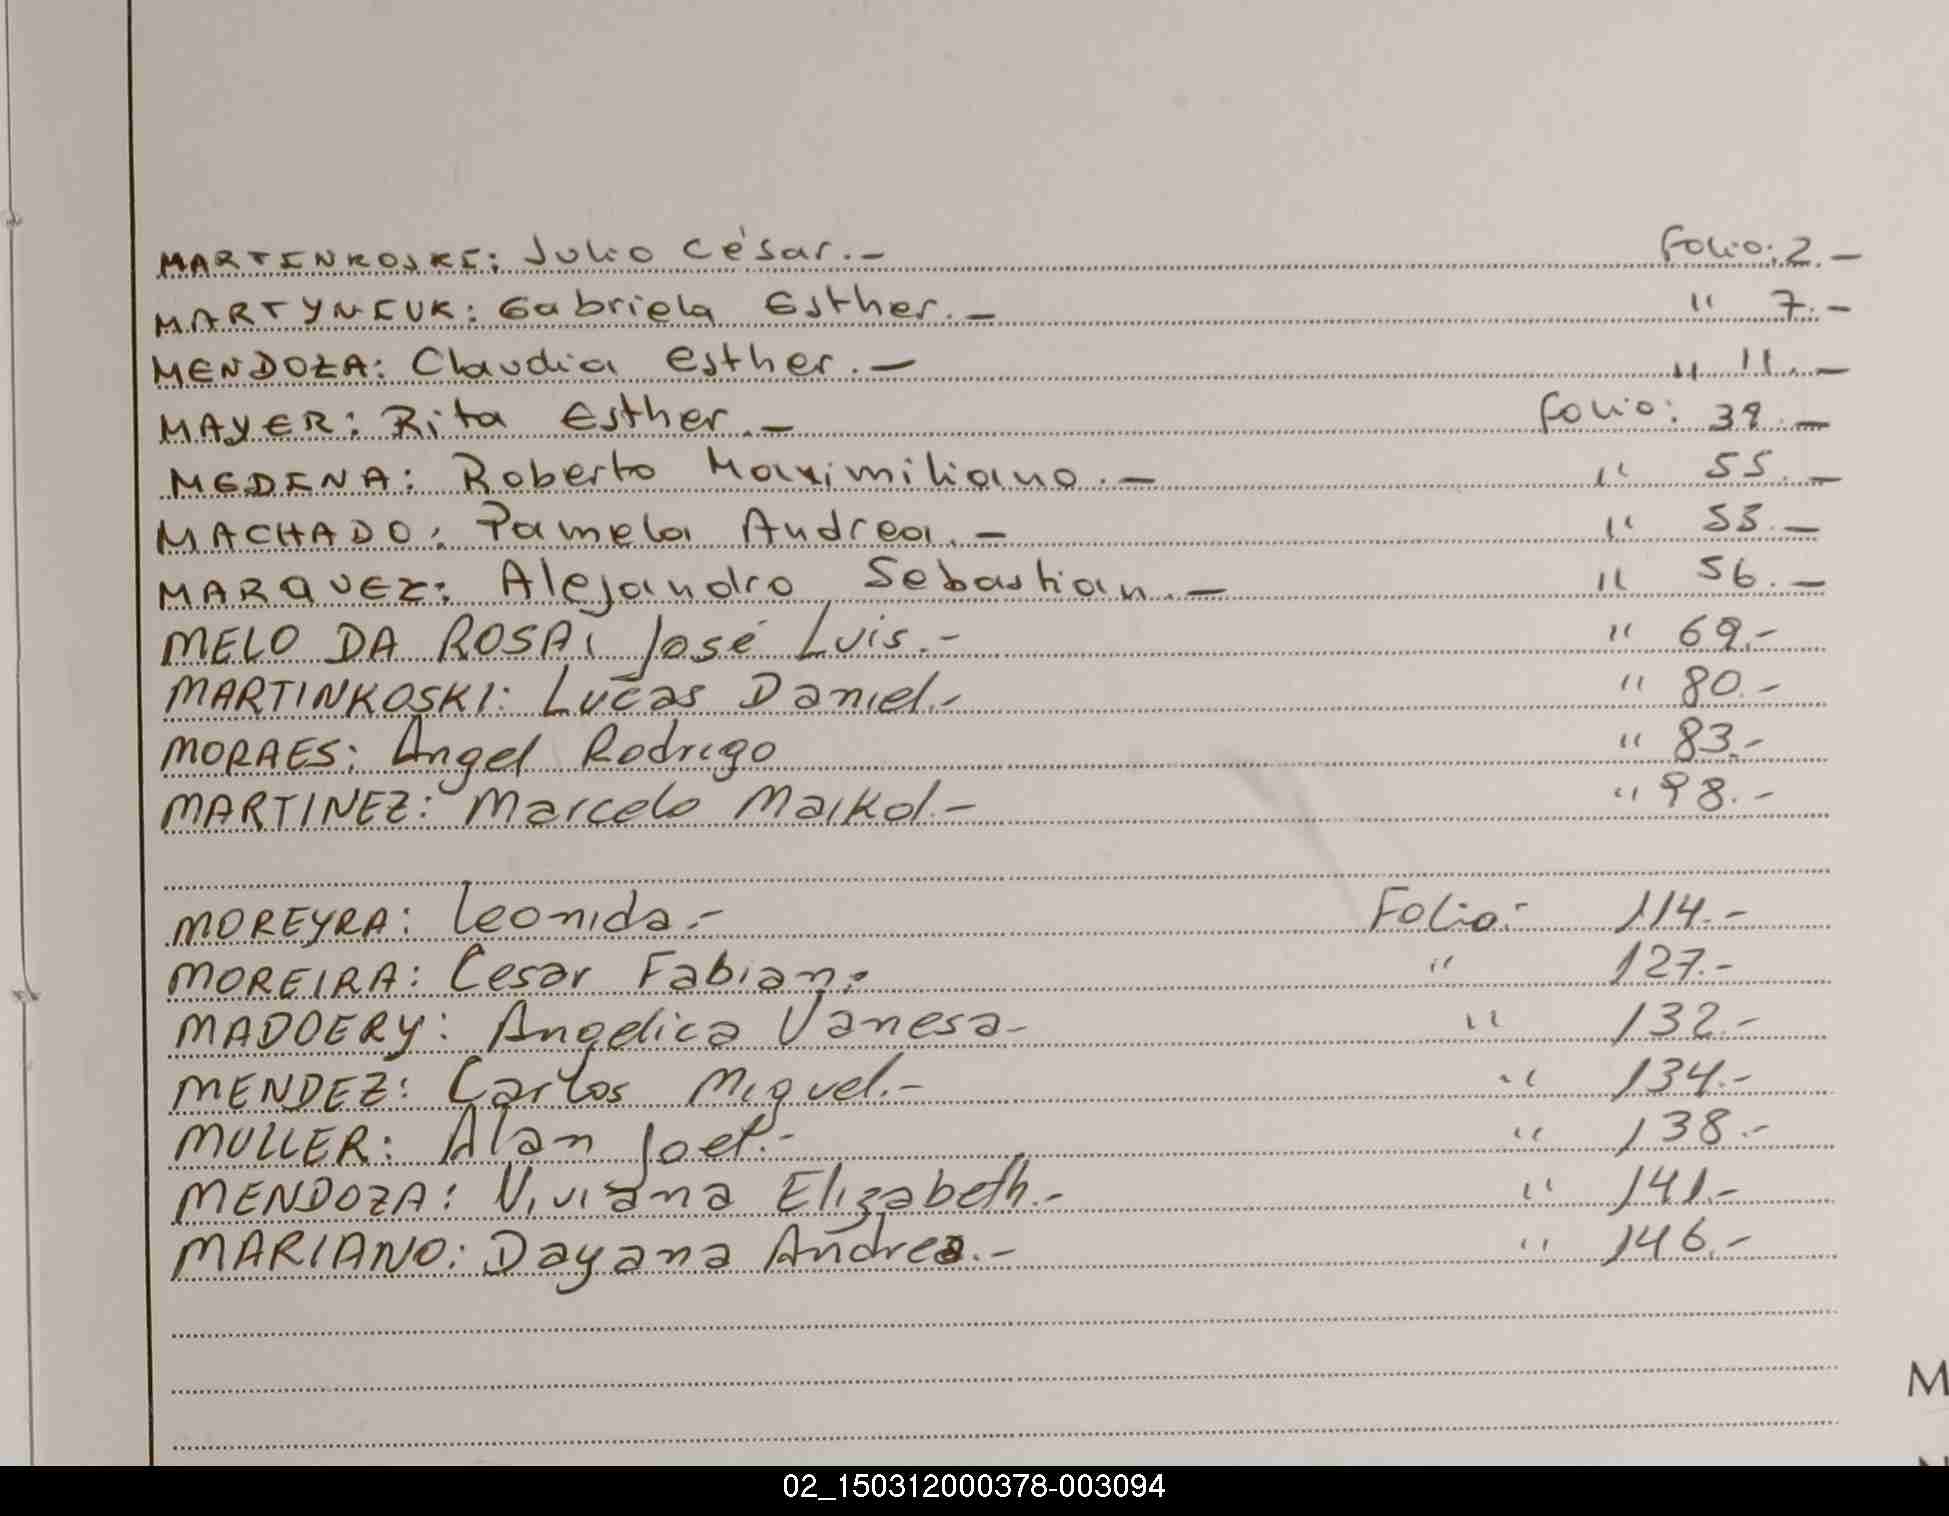 MARTINKOSKI: Julio César.- Folio: 2.-
MARTYNIUK: Gabriela Esther.- " 7.-
MENDOZA: Claudia esther.- " 11.-
MAYER: Rita Esther.- Folio: 39.-
MEDINA: Roberto Maximiliano.- " 55.-
MACHADO: Pamela Andrea.- " 53.-
MARQUEZ: Alejandro Sebastian.- " 56.-
MELO DA ROSA: José Luis.- " 69.-
MARTINKOSKI: Lucas Daniel.- " 80.-
MORAES: Angel Rodrigo " 83.-
MARTINEZ: Marcelo Maikol.- " 98.-
MOREYRA: Leonida.- Folio:- 114.-
MOREIRA: Cesar Fabian.- " 127.-
MADOERY: Angelica Vanesa- " 132.-
MENDEZ: Carlos Miguel.- " 134.-
MULLER: Alan Joel.- " 138.-
MENDOZA: Viviana Elizabeth.- " 141.-
MARIANO: Dayana Andrea.- " 146.-
M
02_150312000378-003094